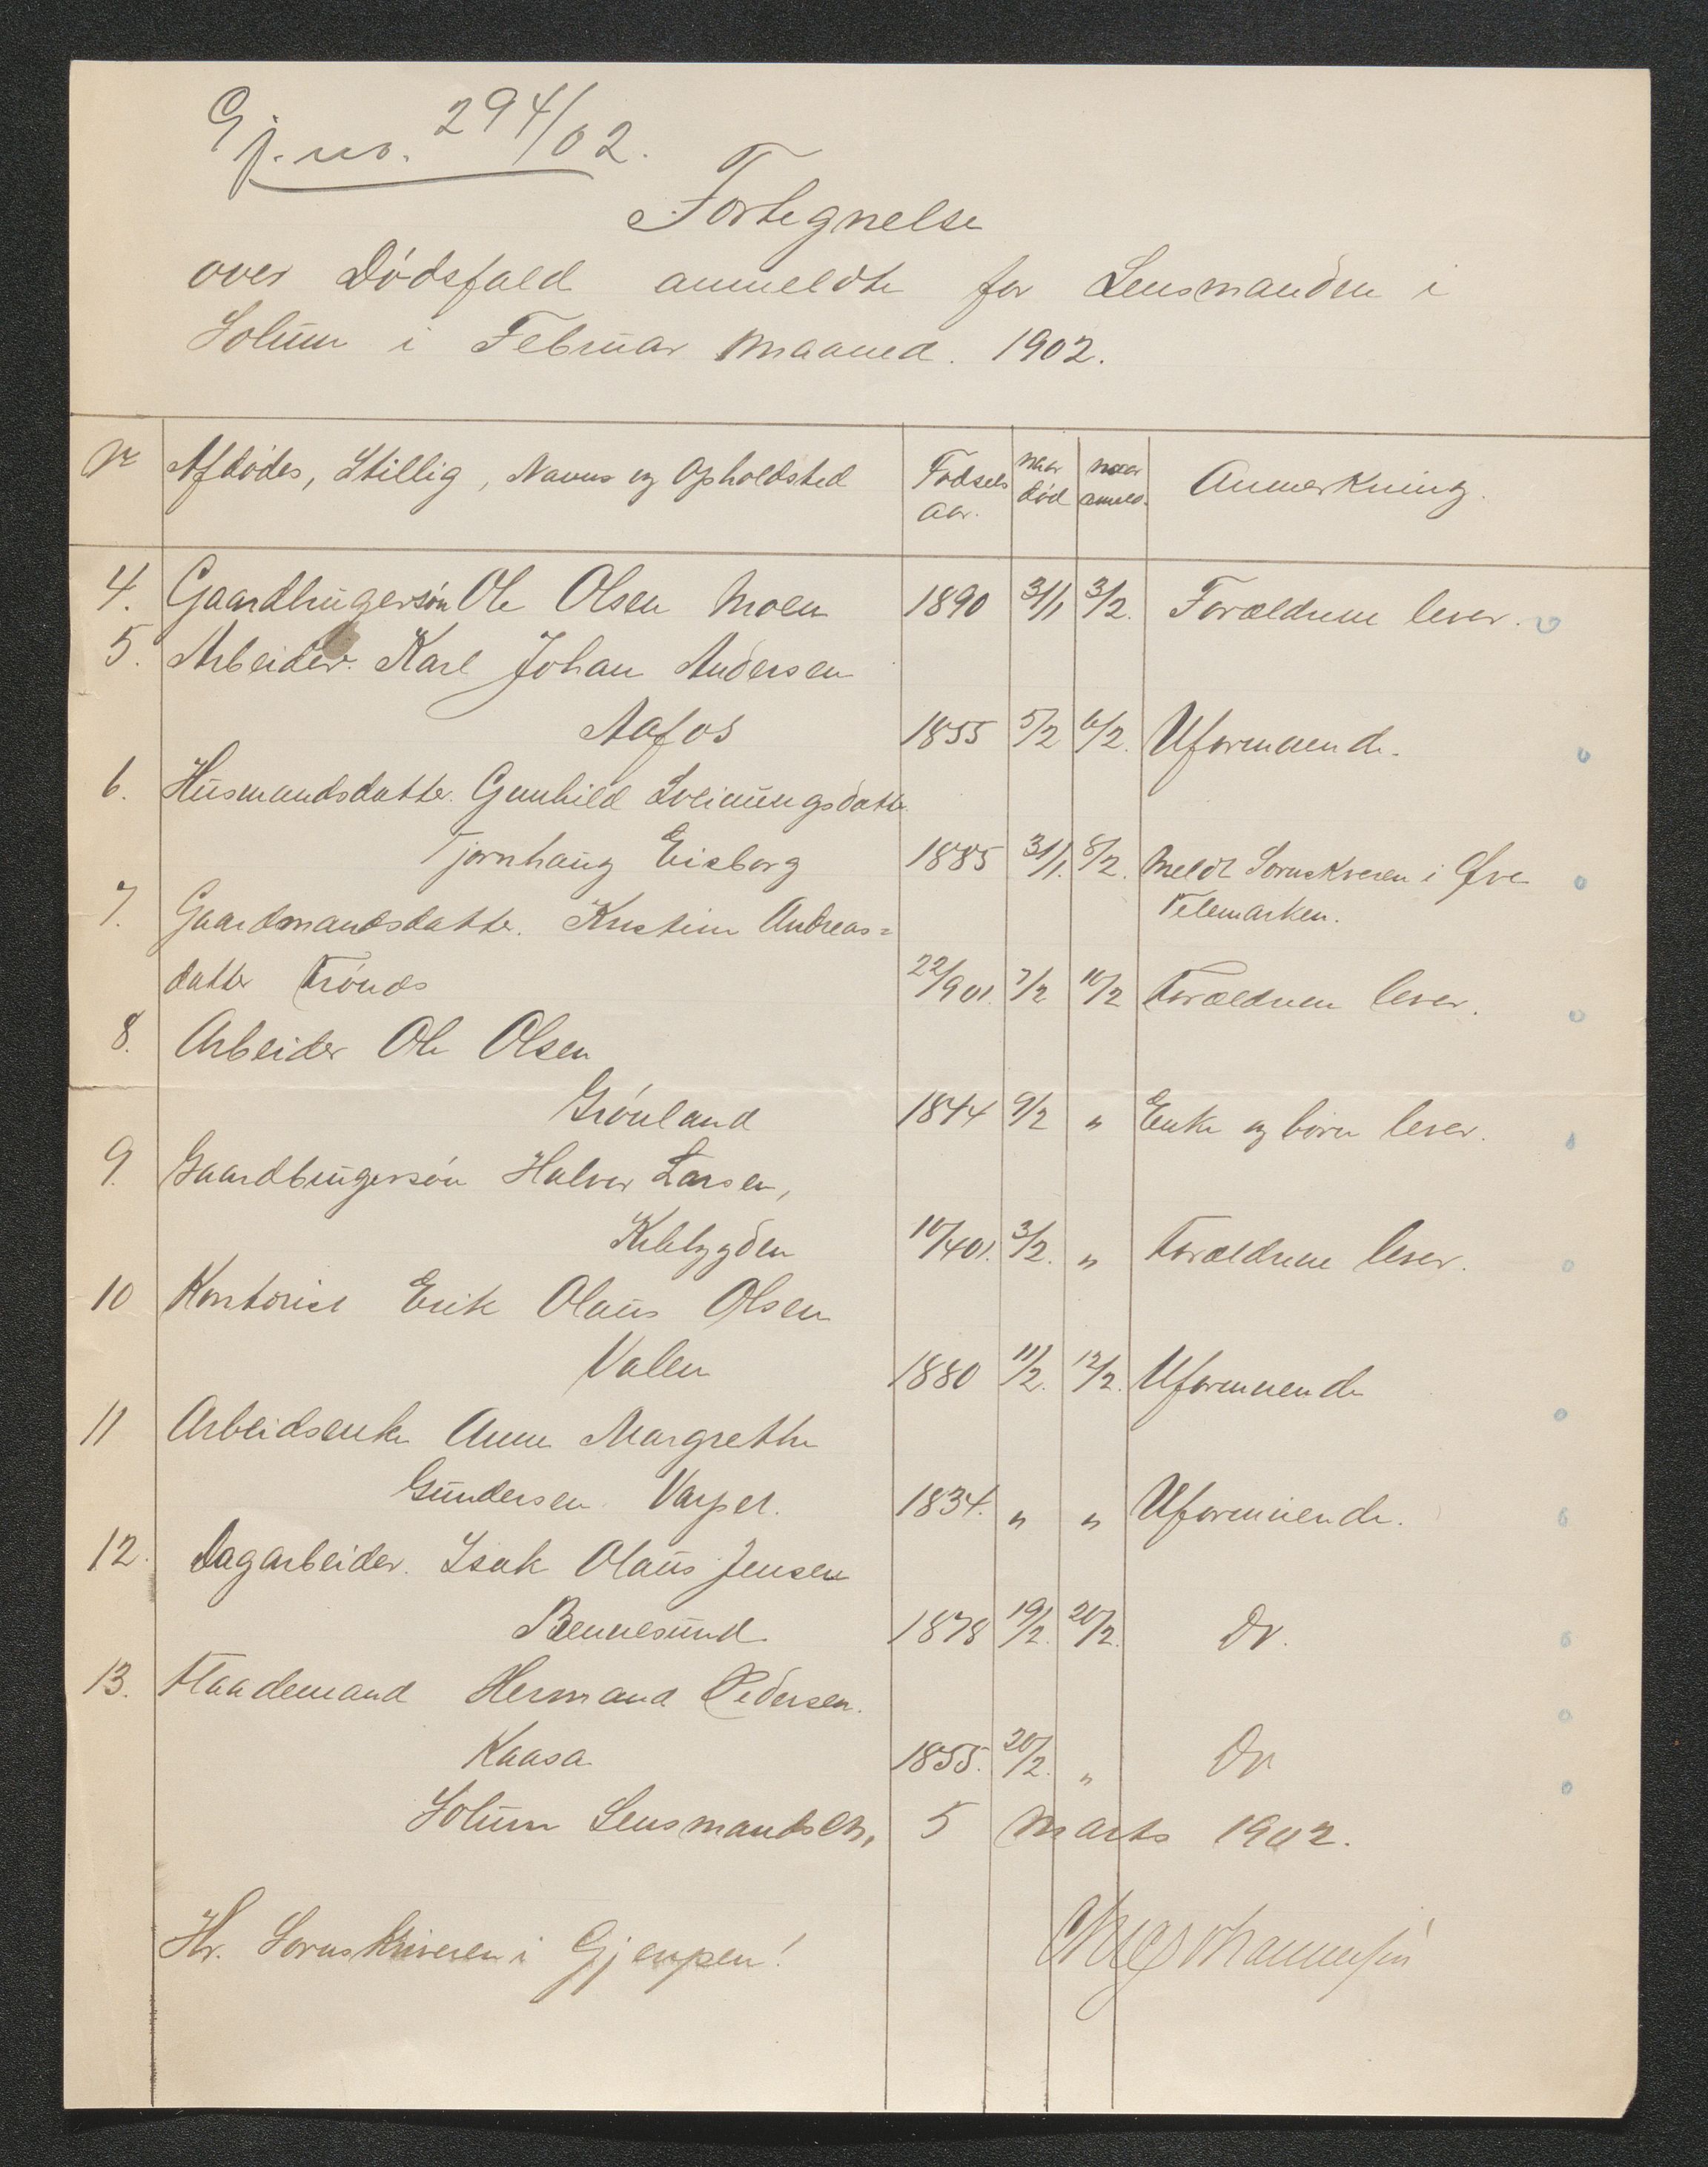 Gj. no. 294/02.
Fortegnelse
over Dödsfald anmeldte for Lensmanden i
Solum i Februar Maaned. 1902.
Nr Afdödes, Stillig, Navns og Opholdsted Fødsels Aar. naar död naar anmeld. Anmerkning.
4. Gaardbrugersön Ole Olsen Moen 1890 31/1 3/2. Forældrene lever.
5. Arbeider. Karl Johan Andersen
Aafos 1855 5/2 6/2. Uformuende.
6. Husmandsdatter. Gunhild Sveinungsdatter
Tjørnhaug Eisborg 1885 31/1. 8/2. Meldt Sorenskriveren i Øvre
Telemarken.
7. Gaardmandsdatter. Kristine Andreas=
datter Trönds 22/901. 7/2 10/2 Forældrene lever.
8. Arbeider Ole Olsen
Grönland 1844 9/2 " Enke og börn lever.
9. Gaardbrugersön Halvor Larsen,
Kilebygden 10/401. 3/2. " Forældrene lever.
10 Kontorist Erik Olaus Olsen
Valen 1880 11/2. 12/2. Uformuende
11 Arbeidsenke Anne Margrethe
Gundersen Varpet. 1834. " " Uformuende.
12. Dagarbeider. Isak Olaus Jensen
Bennesund. 1878 19/2. 20/2. Do.
13. Flaademand Hermand Pedersen.
Kaasa 1855. 20/2. " Do
Solum Lensmandsktr, 5 Marts 1902.
Hr. Sorenskriveren i Gjerpen!